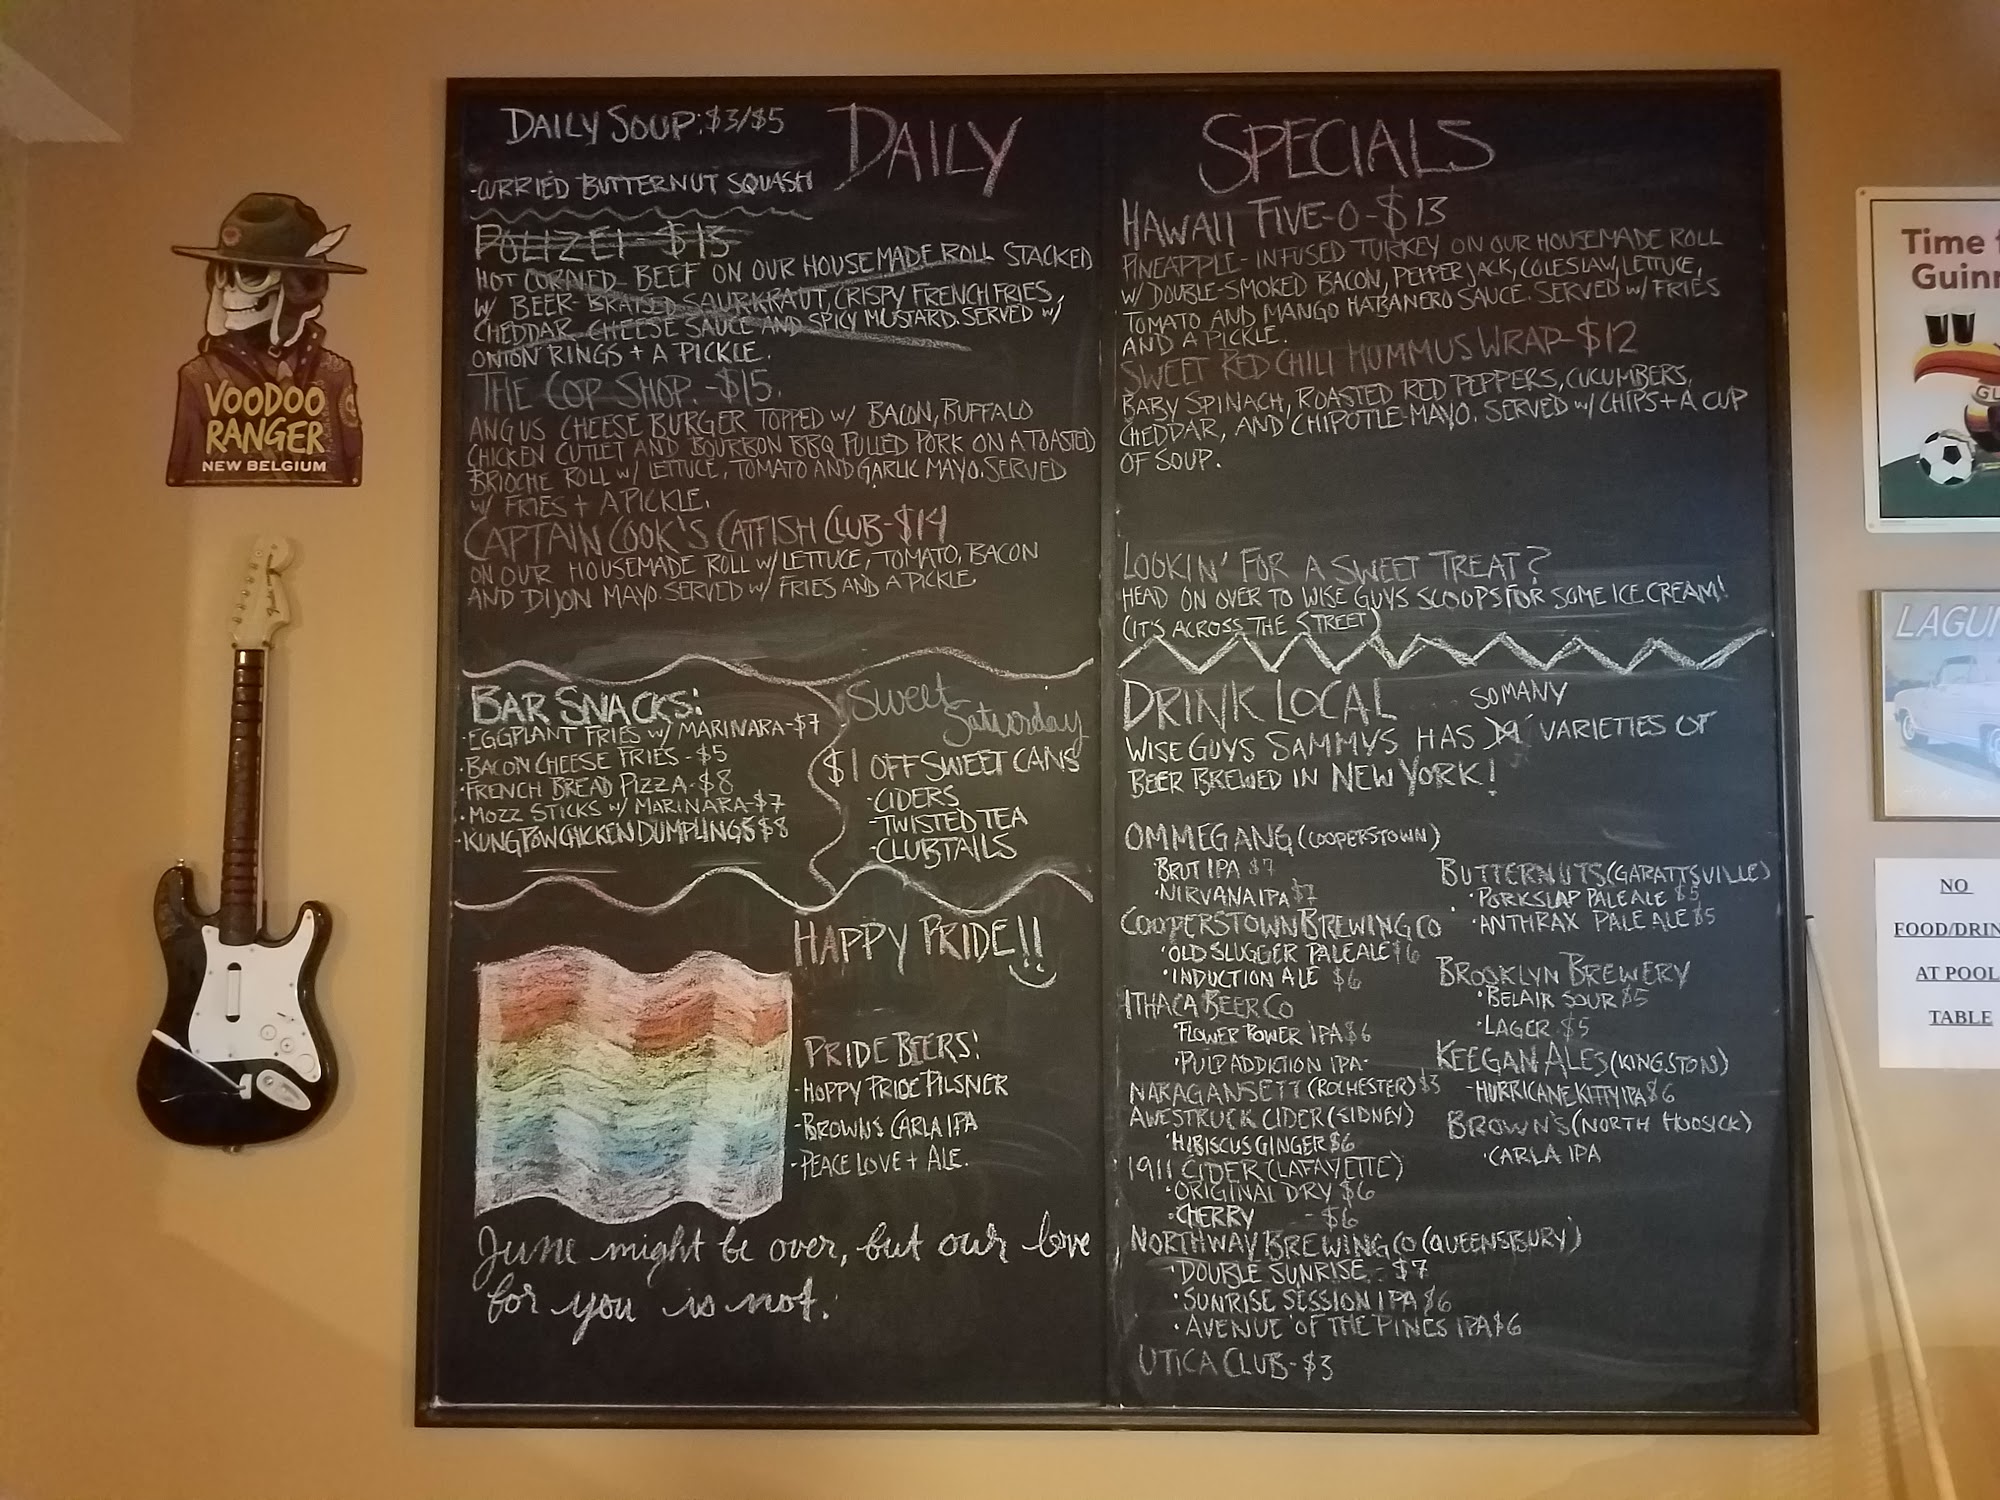 DAILY SPECIALS
DAILY SOUP: $3/$5
-CURRIED BUTTERNUT SQUASH
POLIZEI-$13
HOT CORNED-BEEF ON OUR HOUSEMADE ROLL STACKED
W/ BEER-BRAISED SAURKRAUT, CRISPY FRENCH FRIES,
CHEDDAR CHEESE SAUCE AND SPICY MUSTARD. SERVED W/
ONION RINGS + A PICKLE.
THE COP SHOP.-$15.
ANGUS CHEESE BURGER TOPPED W/ BACON, BUFFALO
CHICKEN CUTLET AND BOURBON BBQ PULLED PORK ON A TOASTED
BRIOCHE ROLL W/ LETTUCE, TOMATO AND GARLIC MAYO. SERVED
W/ FRIES + A PICKLE.
CAPTAIN COOK'S CATFISH CLUB-$14
ON OUR HOUSEMADE ROLL W/ LETTUCE, TOMATO, BACON
AND DIJON MAYO. SERVED W/ FRIES AND A PICKLE
BAR SNACKS:
·EGGPLANT FRIES W/ MARINARA-$7
·BACON CHEESE FRIES-$5
·FRENCH BREAD PIZZA-$8
·MOZZ STICKS W/ MARINARA-$7
·KUNG POW CHICKEN DUMPLINGS $8
Sweet
Saturday
$1 OFF SWEET CANS
-CIDERS
-TWISTED TEA
-CLUBTAILS
HAPPY PRIDE!!
PRIDE BEERS!
-HOPPY PRIDE PILSNER
-BROWN'S CARLA IPA
-PEACE LOVE + ALE.
June might be over, but our love
for you is not.
HAWAII FIVE-O-$13
PINEAPPLE-INFUSED TURKEY ON OUR HOUSEMADE ROLL
W/ DOUBLE-SMOKED BACON, PEPPER JACK, COLESLAW, LETTUCE,
TOMATO AND MANGO HABANERO SAUCE. SERVED W/ FRIES
AND A PICKLE.
SWEET RED CHILI HUMMUS WRAP-$12
BABY SPINACH, ROASTED RED PEPPERS, CUCUMBERS,
CHEDDAR, AND CHIPOTLE-MAYO. SERVED W/ CHIPS + A CUP
OF SOUP.
LOOKIN' FOR A SWEET TREAT?
HEAD ON OVER TO WISE GUYS SCOOPS FOR SOME ICE CREAM!
(IT'S ACROSS THE STREET)
DRINK LOCAL
SO MANY
WISE GUYS SAMMYS HAS VARIETIES OF
BEER BREWED IN NEW YORK!
OMMEGANG (COOPERSTOWN)
·BRUT IPA $7
·NIRVANA IPA $7
COOPERSTOWN BREWING CO
·OLD SLUGGER PALE ALE $6
·INDUCTION ALE $6
ITHACA BEER CO
·FLOWER POWER IPA $6
·PULP ADDICTION IPA-
NARAGANSETT (ROCHESTER) $3
AWESTRUCK CIDER (SIDNEY)
·HIBISCUS GINGER $6
1911 CIDER (LAFAYETTE)
·ORIGINAL DRY $6
·CHERRY -$6
NORTHWAY BREWING CO (QUEENSBURY)
·DOUBLE SUNRISE-$7
·SUNRISE SESSION IPA $6
·AVENUE OF THE PINES IPA $6
UTICA CLUB-$3
BUTTERNUTS (GARATTSVILLE)
·PORKSLAP PALE ALE $5
·ANTHRAX PALE ALE $5
BROOKLYN BREWERY
·BELAIR SOUR $5
·LAGER $5
KEEGAN ALES (KINGSTON)
-HURRICANE KITTY IPA $6
BROWN'S (NORTH HOOSICK)
·CARLA IPA
VOODOO
RANGER
NEW BELGIUM
Time
Guin
GU
LAGU
NO
FOOD/DRIN
AT POOL
TABLE